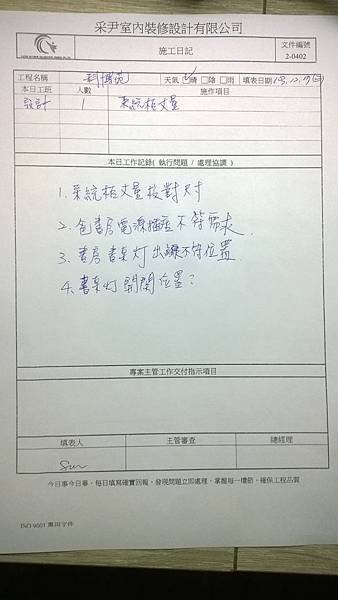 采尹室內裝修設計有限公司
施工日記
文件編號
2-0402
工程名稱 科博苑 天氣 ☑晴 □陰 □雨 填表日期
本日工班 人數 施作項目
設計 1 系統柜丈量
本日工作記錄( 執行問題 / 處理協調 )
1. 系統柜丈量校對尺寸
2. 電源插座不符需求
3. 書房書桌灯出線不符位置
4. 書桌灯開關位置?
專案主管工作交付指示項目
填表人 主管審查 總經理
Sun
今日事今日畢、每日填寫確實回報，發現問題立即處理、掌握每一環節、確保工程品質
ISO 9001